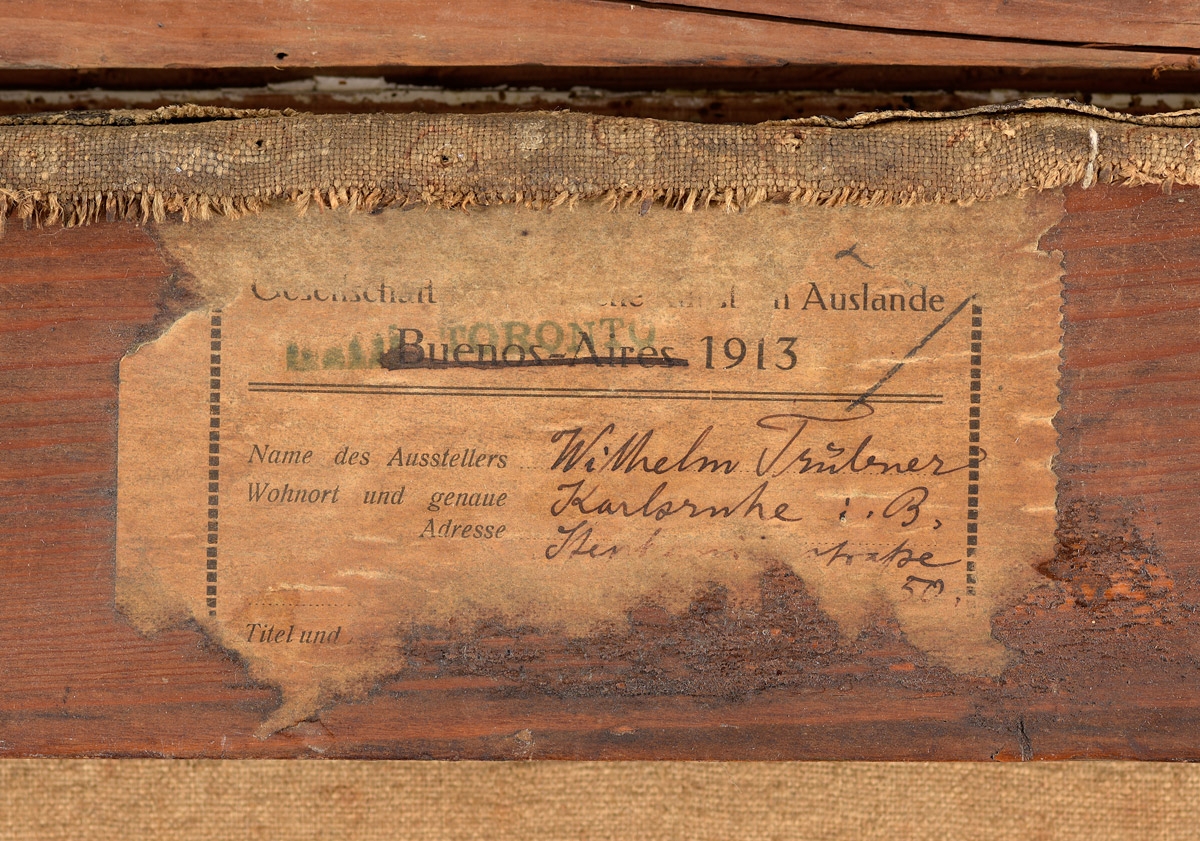 Gesellschaft Kunst Auslande
TORONTO
Buenos-Aires 1913
Name des Ausstellers Wilhelm Trübner
Wohnort und genaue Karlsruhe i. B.
Adresse
straße
50.
Titel und